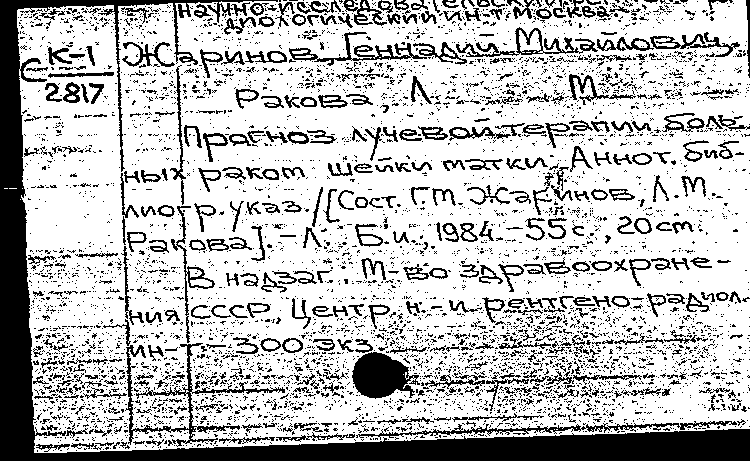 научно-исследовательский
диологический ин-т. Москва.
К-1 Жаринов, Геннадий Михайлович,
С 2817
Ракова, Л. М.
Прогноз лучевой терапии боль-
ных раком шейки матки. Аннот. биб-
лиогр. указ. / [Сост. Г.М. Жаринов, Л.М.
Ракова]. - Л.: Б.и., 1984. - 55 с., 20 см.
В надзаг.: М-во здравоохране-
ния СССР, Центр. н.-и. рентгено-радиол.
ин-т. - 300 экз.